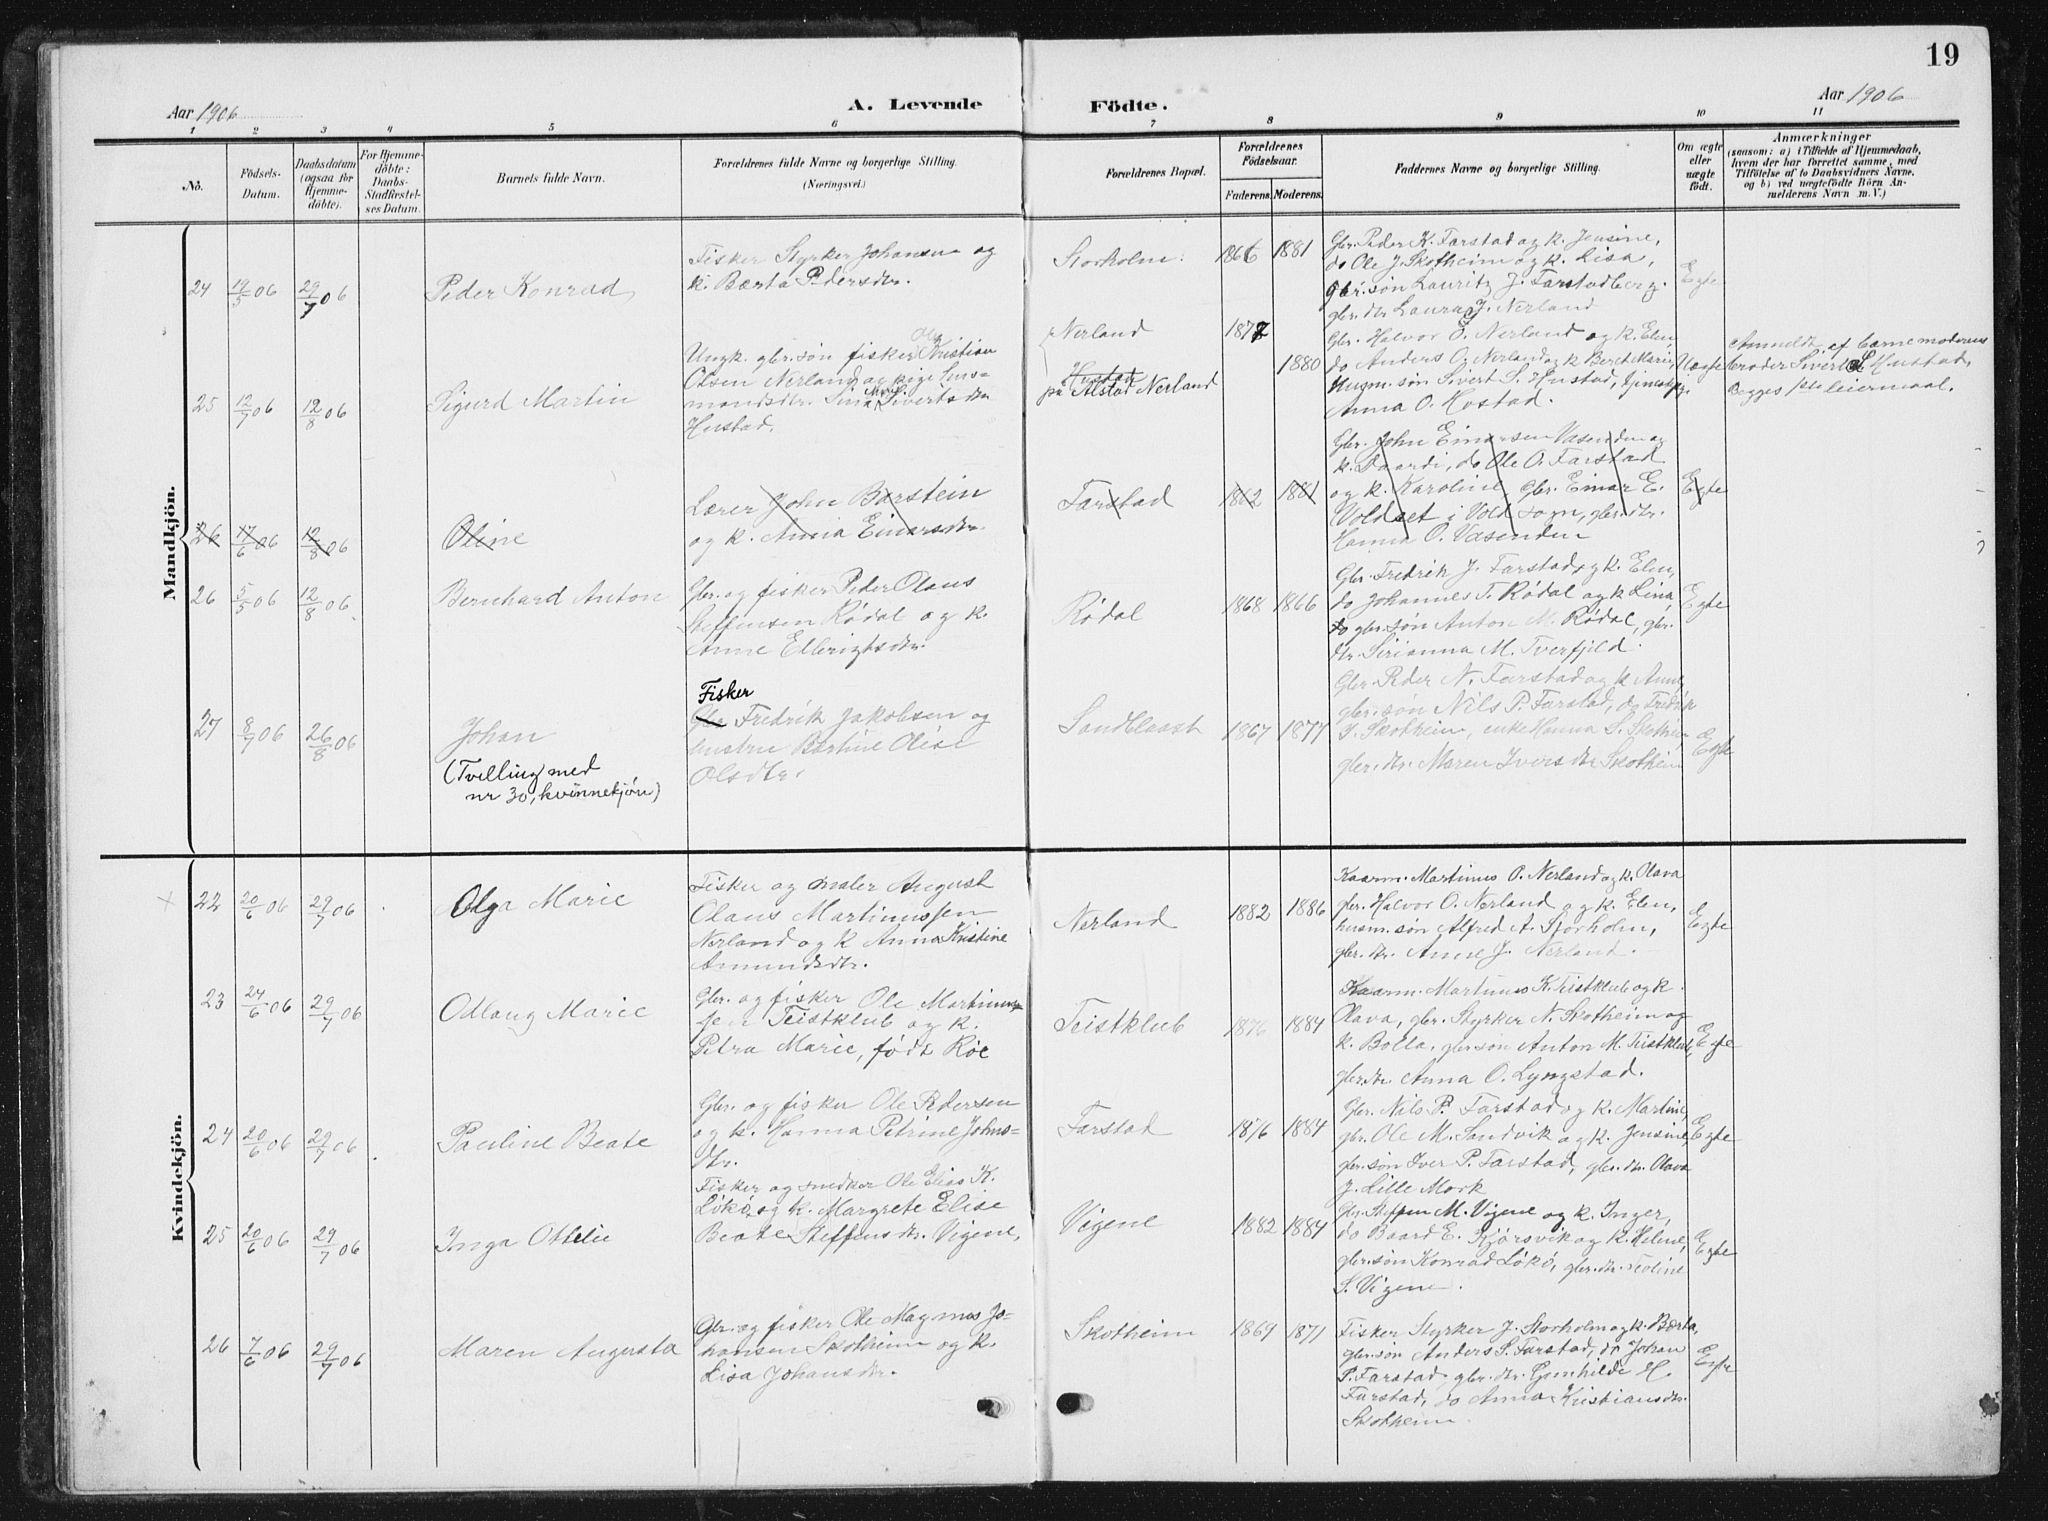 19
Aar 1906
A. Levende Födte.
Aar 1906
1 2 3 4 5 6 7 8 9 10 11
No.
Födsels-
Datum.
Daabsdatum
(ogsaa for
Hjemme-
döbte).
For Hjemme-
döbte:
Daabs-
Stadfæstel-
ses Datum.
Barnets fulde Navn.
Forældrenes fulde Navne og borgerlige Stilling.
(Næringsvei.)
Forældrenes Bopæl.
Forældrenes
Födselsaar.
Faderens. Moderens.
Faddernes Navne og borgerlige Stilling.
Om ægte
eller
uægte
födt.
Anmærkninger
(saasom: a) i Tilfælde af Hjemmedaab,
hvem der har forrettet samme, med
Tilföielse af to Daabsvidners Navne,
og b) ved uægtefödte Börn An-
melderens Navn m. V.)
Mandkjön.
24 19/5 06 29/7 06 Peder Konrad
Fisker Styrker Johansen og
k. Bærta Pedersdtr.
Storholm 1866 1881
Gbr. Peder K. Farstad og k. Jensine,
do Ole J. Skotheim og k. Lisa,
gbr. søn Lauritz J. Farstadberg.
gbr. dtr. Laura J. Nerland
Egte
25 12/7 06 12/8 06 Sigurd Martin
Ungk. gbr. søn fisker Ole Kristian
Olsen Nerland og pige Lars-
mandsdtr. Sina Mar. Sivertsdtr.
Hustad.
Nerland
Hustad
på Alstad Nerland
1877
1880
Gbr. Halvor O. Nerland og k. Elen,
do Anders O. Nerland og k Beret Marie,
Husm. søn Sivert S. Hustad,
Anna O. Kostad.
Uægte
Anmeldt af barnemoderens
broder Sivert S Hustad,
Begges 1ste leiermaal.
26 17/6 06 12/8 06 Oline
Lærer John Barstein
og k. Anna Einarsdtr.
Farstad 1862 1881
Gbr. John Einarsen Vasenden og
k. Baardi, do Ole O. Farstad
og k. Karoline, gbr. Einar E.
Voldset i Vold sogn, gbr. dtr.
Hanna O. Vasenden
Egte
26 5/5 06 12/8 06 Bernhard Anton
Gbr. og fisker Peder Olaus
Steffensen Rødal og k.
Anne Ellerigtsdtr.
Rødal 1868 1866
Gbr. Fredrik J. Farstad og k. Elen,
do Johannes T. Rødal og k Lina,
do gbr. søn Anton M. Rødal, gbr.
dtr. Sirianna M. Tverfjeld.
Egte
27 8/7 06 26/8 06 Johan
(Tvilling med
nr 30, kvinnekjön)
Fisker
Gbr Fredrik Jakobsen og
hustru Bertine Olise
Olsdtr.
Sandblaast 1867 1877
Gbr. Peder N. Farstad og k Anne,
gbr. søn Nils P. Farstad, do Fredrik
J. Skotheim, enke Hanna S. Skotheim
gbr. dtr. Maren Iversdtr. Skotheim
Egte
Kvindekjön.
22 20/6 06 29/7 06 Olga Marie
Fisker og maler August
Olaus Martinussen
Nerland og k Anna Kristine
Amundsdtr.
Nerland 1882 1886
Kaarm. Martinus O. Nerland og k. Olava
gbr. Halvor O. Nerland og k. Elen,
husm. søn Alfred A. Storholm,
gbr. dtr. Anne J. Nerland.
Egte
23 24/6 06 29/7 06 Odlaug Marie
Gbr. og fisker Ole Martinus-
sen Teistklub og k.
Petra Marie, født Røe
Teistklub 1876 1884
Kaarm. Martinus K. Teistklub og k.
Olava, gbr. Styrker N. Skotheim og
k. Bolla, gbr søn Anton M. Teistklub,
gbr. dtr. Anna O. Lyngstad.
Egte
24 20/6 06 29/7 06 Pauline Beate
Gbr. og fisker Ole Pedersen
og k. Hanna Petrine Johns-
dtr.
Farstad 1876 1884
Gbr. Nils P. Farstad og k. Martine,
gbr. Ole M. Sandvik og k. Jensine,
gbr. søn Iver P. Farstad, gbr. dtr. Olava
J. Lille Mork
Egte
25 20/6 06 29/7 06 Inga Ottelie
Fisker og snedker Ole Elias K.
Løkø, og k. Margrete Elise
Beate Steffensdtr. Vigene,
Vigene 1882 1884
Gbr. Steffen M. Vigene og k. Inger,
do Baard E. Kjørsvik og k. Helene,
gbr. søn Konrad Løkø, gbr. dtr. Teoline
S. Vigene.
Egte
26 7/6 06 29/7 06 Maren Augusta
Gbr. og fisker Ole Magnus Jo-
hansen Skotheim og k.
Lisa Johansdtr.
Skotheim 1869 1871
Fisker Styrker J. Storholm og k. Bærta,
gbr. søn Anders S. Farstad, do Johan
P. Farstad, gbr. dtr. Gunhilde H.
Farstad, do Anna Kristiansdtr.
Skotheim.
Egte